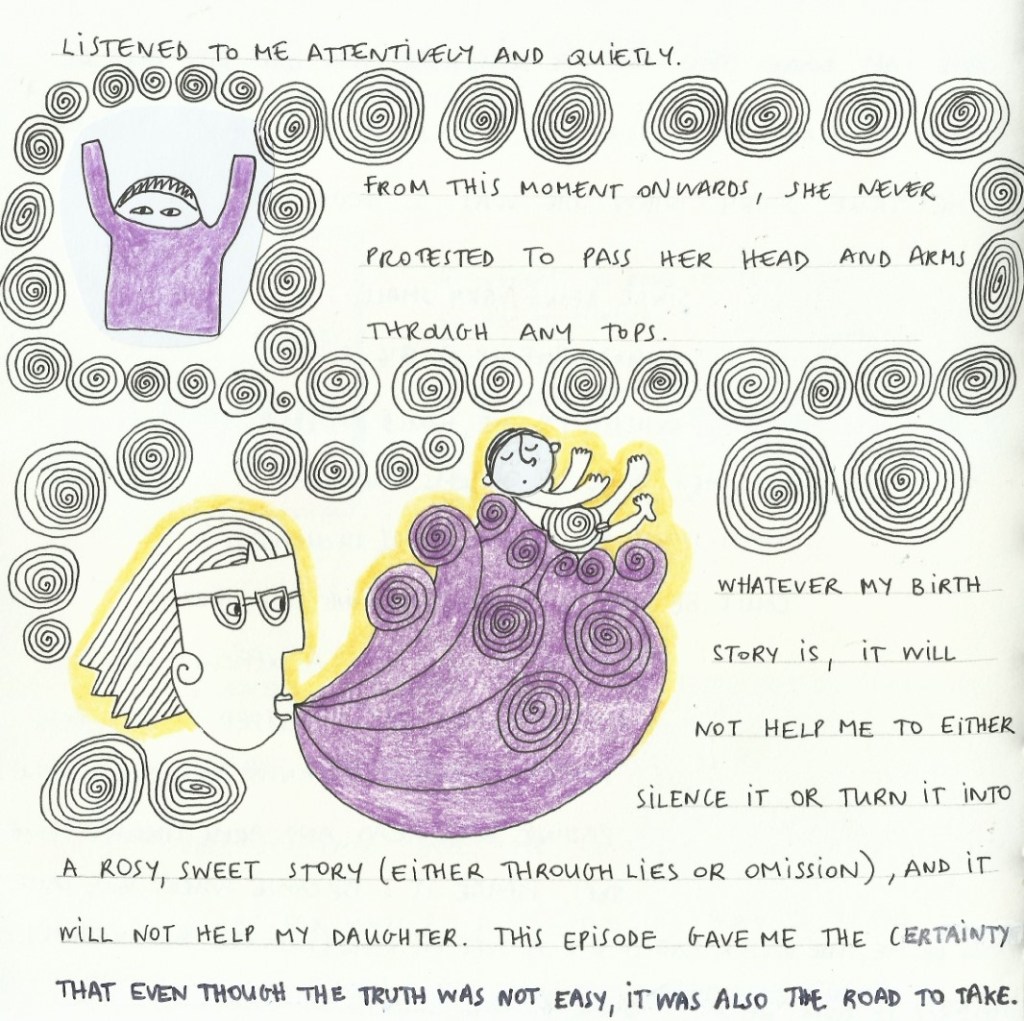 LISTENED TO ME ATTENTIVELY AND QUIETLY.
FROM THIS MOMENT ONWARDS, SHE NEVER
PROTESTED TO PASS HER HEAD AND ARMS
THROUGH ANY TOPS.
WHATEVER MY BIRTH
STORY IS, IT WILL
NOT HELP ME TO EITHER
SILENCE IT OR TURN IT INTO
A ROSY, SWEET STORY (EITHER THROUGH LIES OR OMISSION), AND IT
WILL NOT HELP MY DAUGHTER. THIS EPISODE GAVE ME THE CERTAINTY
THAT EVEN THOUGH THE TRUTH WAS NOT EASY, IT WAS ALSO THE ROAD TO TAKE.